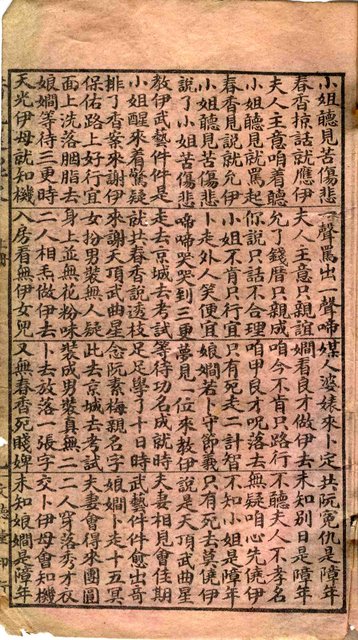 小姐聽見苦傷悲 一聲罵出一聲啼 媒人婆婊來卜定 共阮冤仇是障年
春香掠話就應伊 夫人主意只親誼 嫺看良才做伊去 未知別日是障年
夫人主意咱着聽 允了錢厝只親成 咱今不肯只路行 不聽夫人不孝名
小姐聽見就罵起 你說只話不合理 咱甲良才呪落去 無疑咱心先僥伊
春香見說就允伊 小姐不肯只行宜 只有死走二計智 不知小姐是障年
小姐聽見苦傷悲 卜走外人笑便宜 娘嫺若卜守節義 只有死去莫僥伊
說了小姐苦傷悲 啼啼哭哭到三更 夢見一位來教伊 說是天頂武曲星
教伊武藝件件是 走去京城去考試 等待功名成就時 夫妻相見會佳期
小姐醒來看驚疑 就共春香說透枝 足足學了十日時 武藝件件愈出奇
排了香案來謝伊 來謝天頂武曲星 念阮素梅親名字 娘嫺卜走十五冥
保佑路上好行宜 女扮男裝無人疑 此去京城去考試 夫妻會得來團圓
面上洗落胭脂去 身上並無花粉味 裝成男裝真無二 二人穿落秀才衣
娘嫺等待三更時 二人相焉做伊去 卜去放落一張字 交卜伊母會知機
天光伊母就知機 入房看無伊女兒 又無春香死賤婢 未知娘嫺是障年